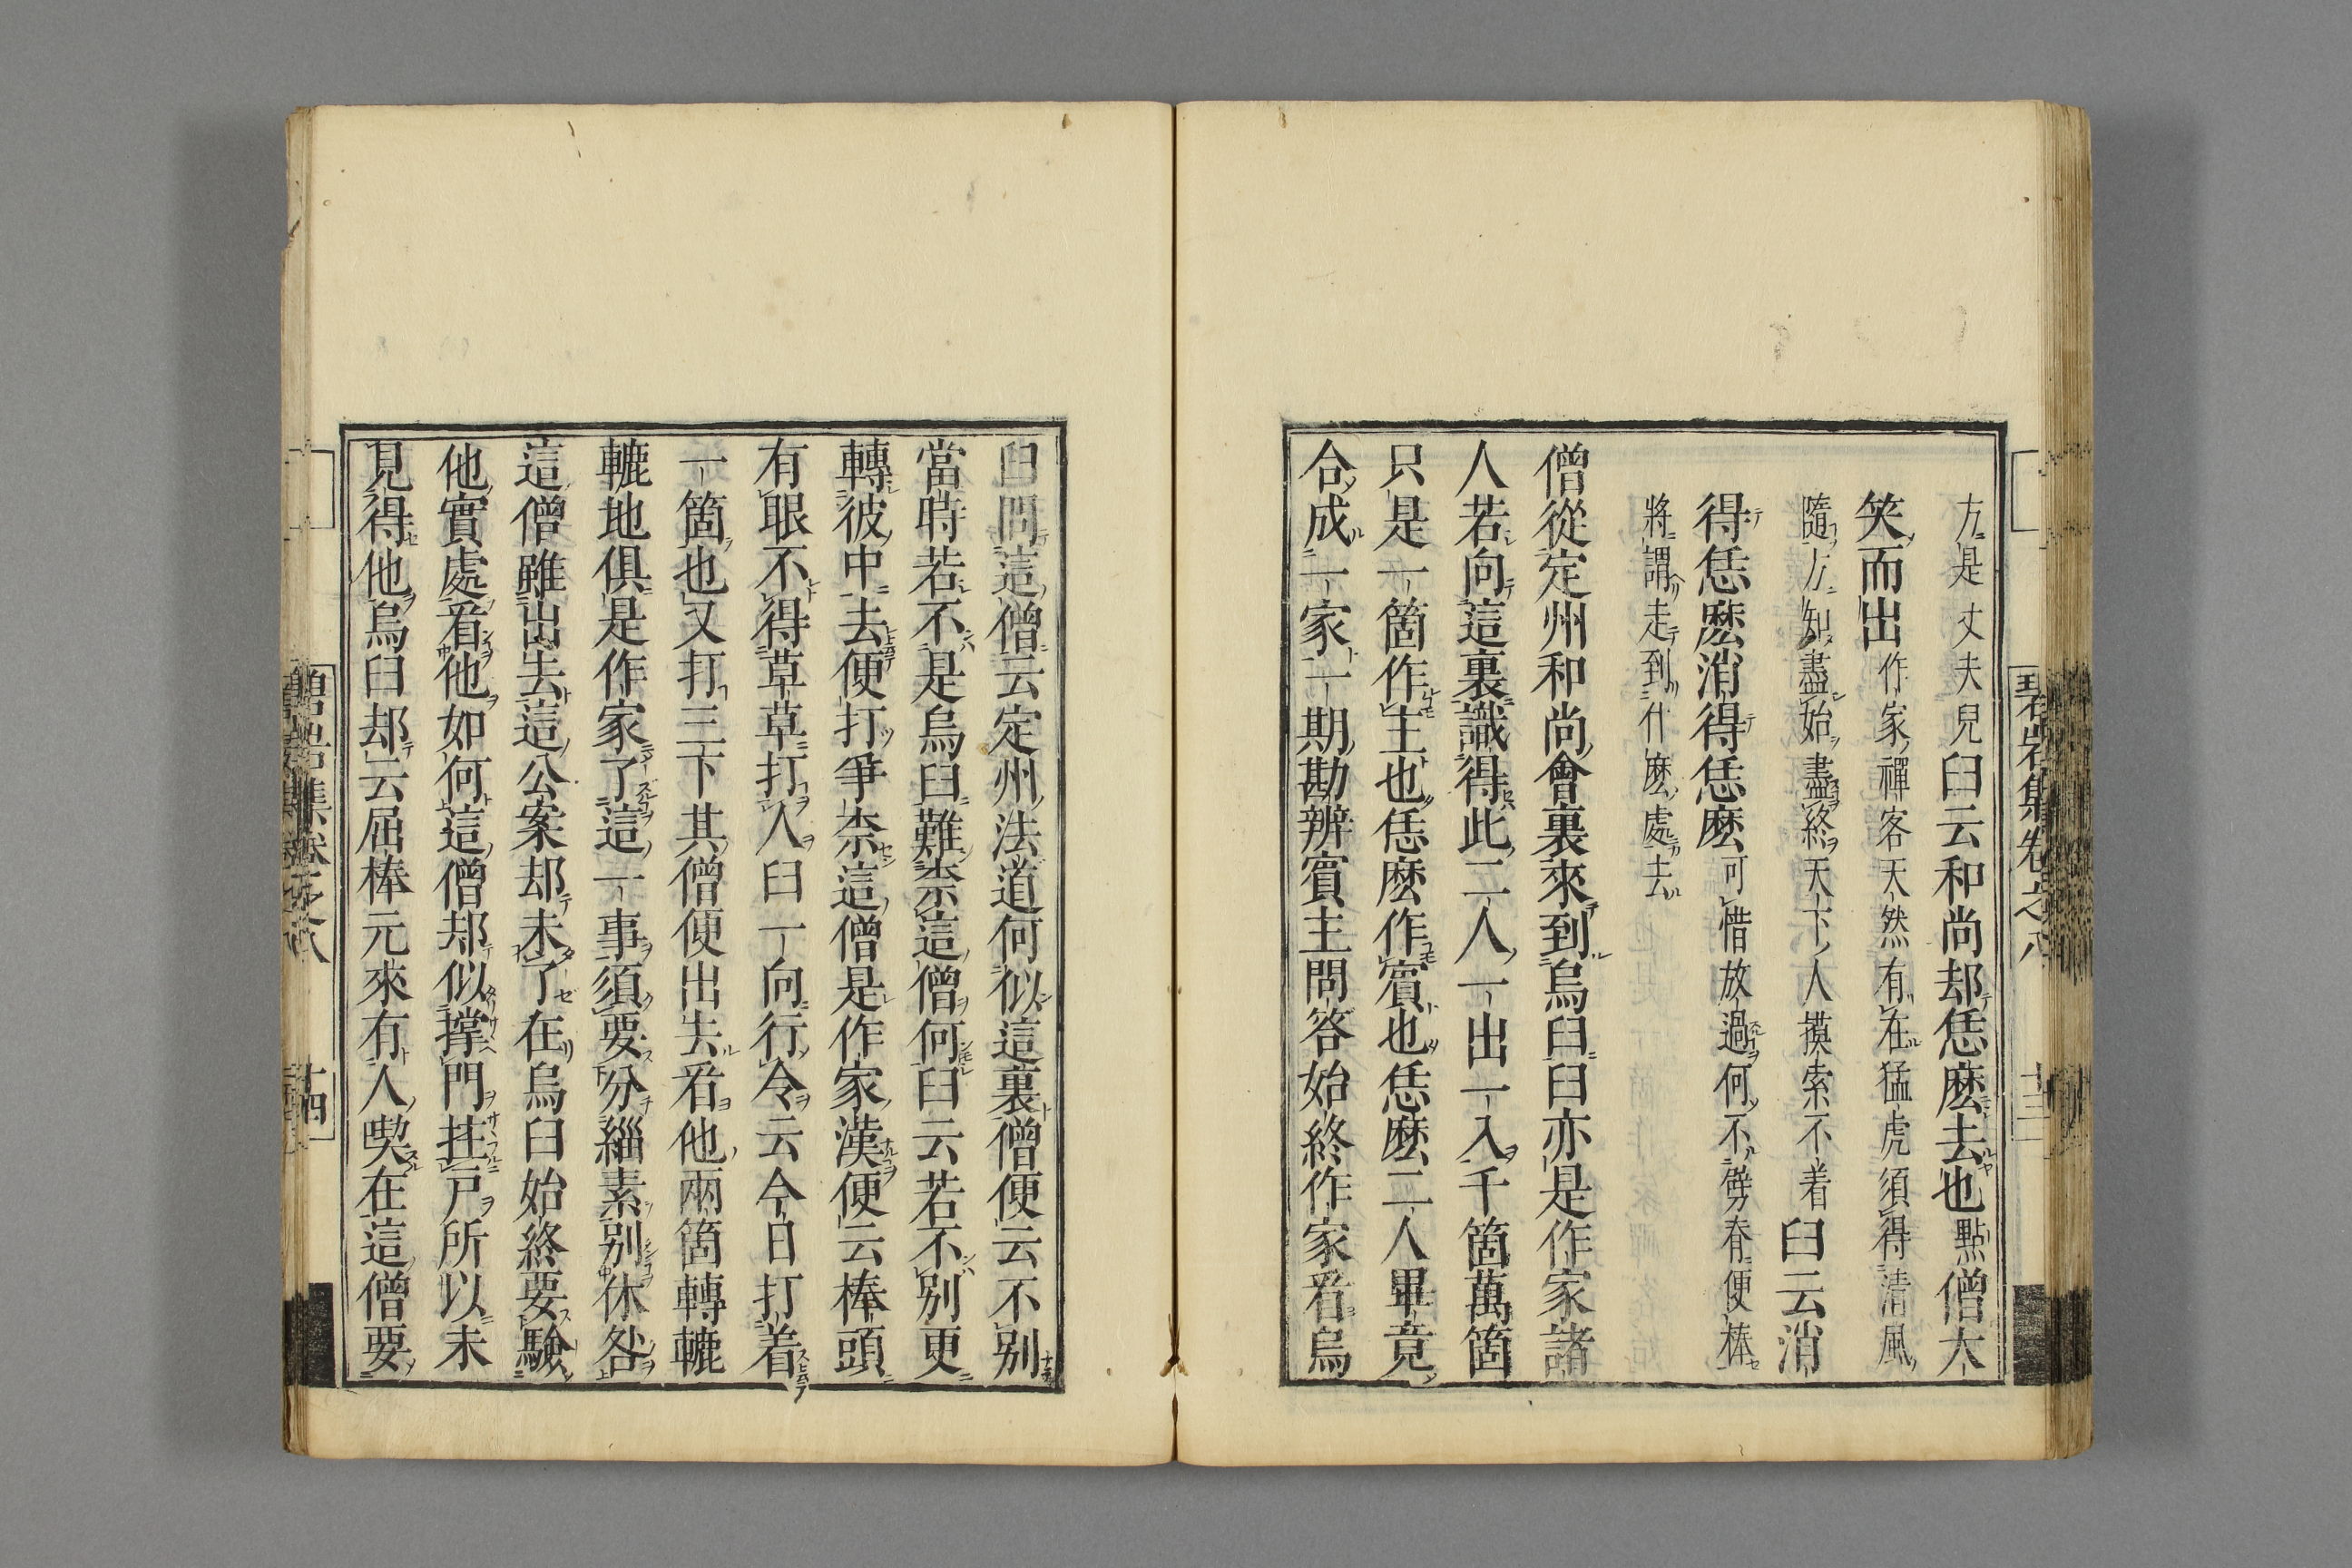 方是丈夫兒臼云和尚却恁麽去也點僧大
笑而出作家禪客天然有在猛虎須得清風
隨方知盡始盡終天下人摸索不着臼云消
得恁麽消得恁麽可惜放過何不劈脊便棒
將謂走到什麽處去
僧從定州和尚會裏來到烏臼臼亦是作家諸
人若向這裏識得此二人一出一入千箇萬箇
只是一箇作主也恁麽作賓也恁麽二人畢竟
合成一家一期勘辨賓主問答始終作家看烏
臼問這僧云定州法道何似這裏僧便云不別
當時若不是烏臼難柰這僧何臼云若不別更
轉彼中去便打爭柰這僧是作家漢便云棒頭
有眼不得草草打人臼一向行令云今日打着
一箇也又打三下其僧便出去看他兩箇轉轆
轆地俱是作家了這一事須要分緇素別休咎
這僧雖出去這公案却未了在烏臼始終要驗
他實處看他如何這僧却似撑門拄戸所以未
見得他烏臼却云屈棒元來有人喫在這僧要
碧岩集卷之八
十三
碧岩集卷之八
十四